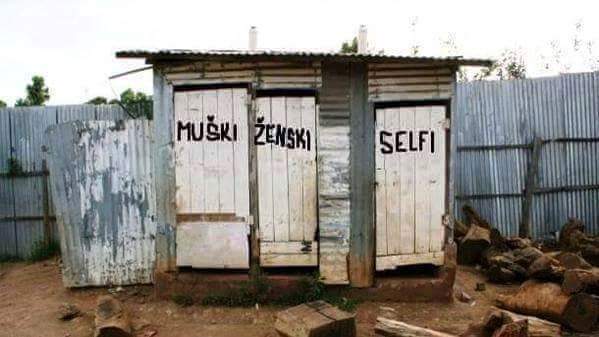 MUŠKI
ŽENSKI
SELFI